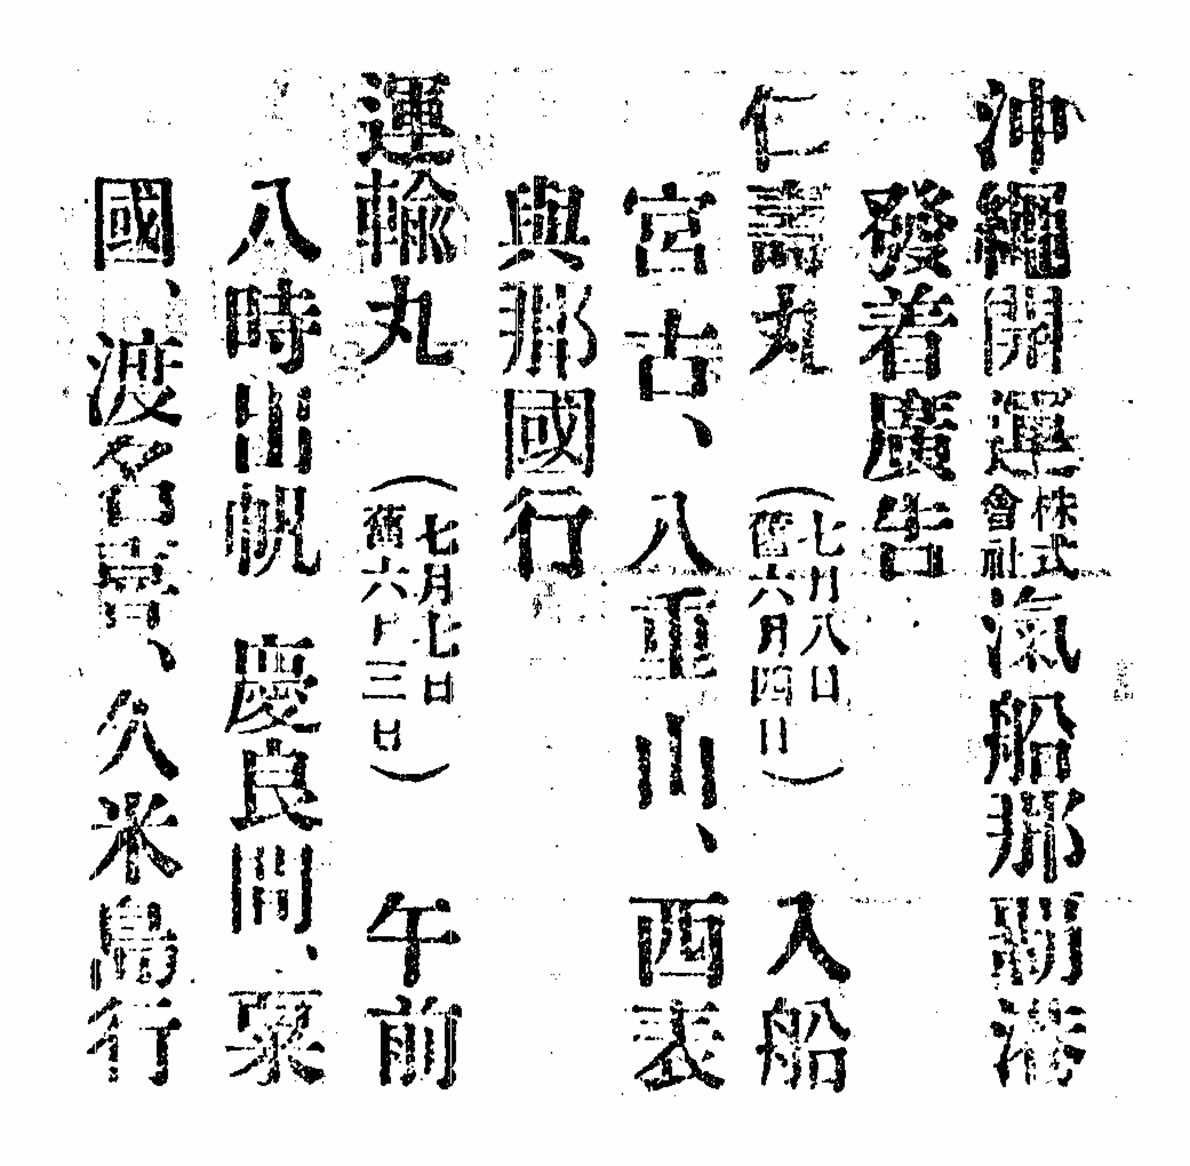 沖繩開運株式會社滊船那覇港
發着廣告
仁壽丸（七月八日舊六月四日）入船
宮古、八重山、西表
與那國行
運輸丸（七月七日舊六月三日）午前
八時出帆 慶良間、粟
國、渡名喜、久米島行